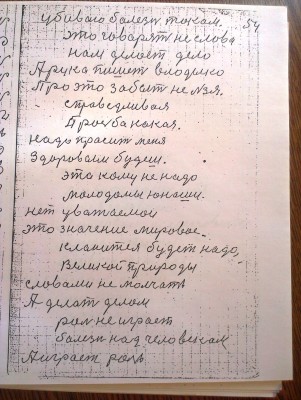 54
убиваю болезн таксам.
это говарят не слова
нам делает дело
А рука пишет владимо
Про это забыт не Нзя.
справедливая
Прозба какая.
надо прасит меня
Здоровам будеш.
это каму не надо
моладомы юнаши.
нет уважаемои
это значение мировое.
кланится будет надо,
Великои природы
словами не молчать
А делат делом
рол не играет
балезн над человекам
А играет рол